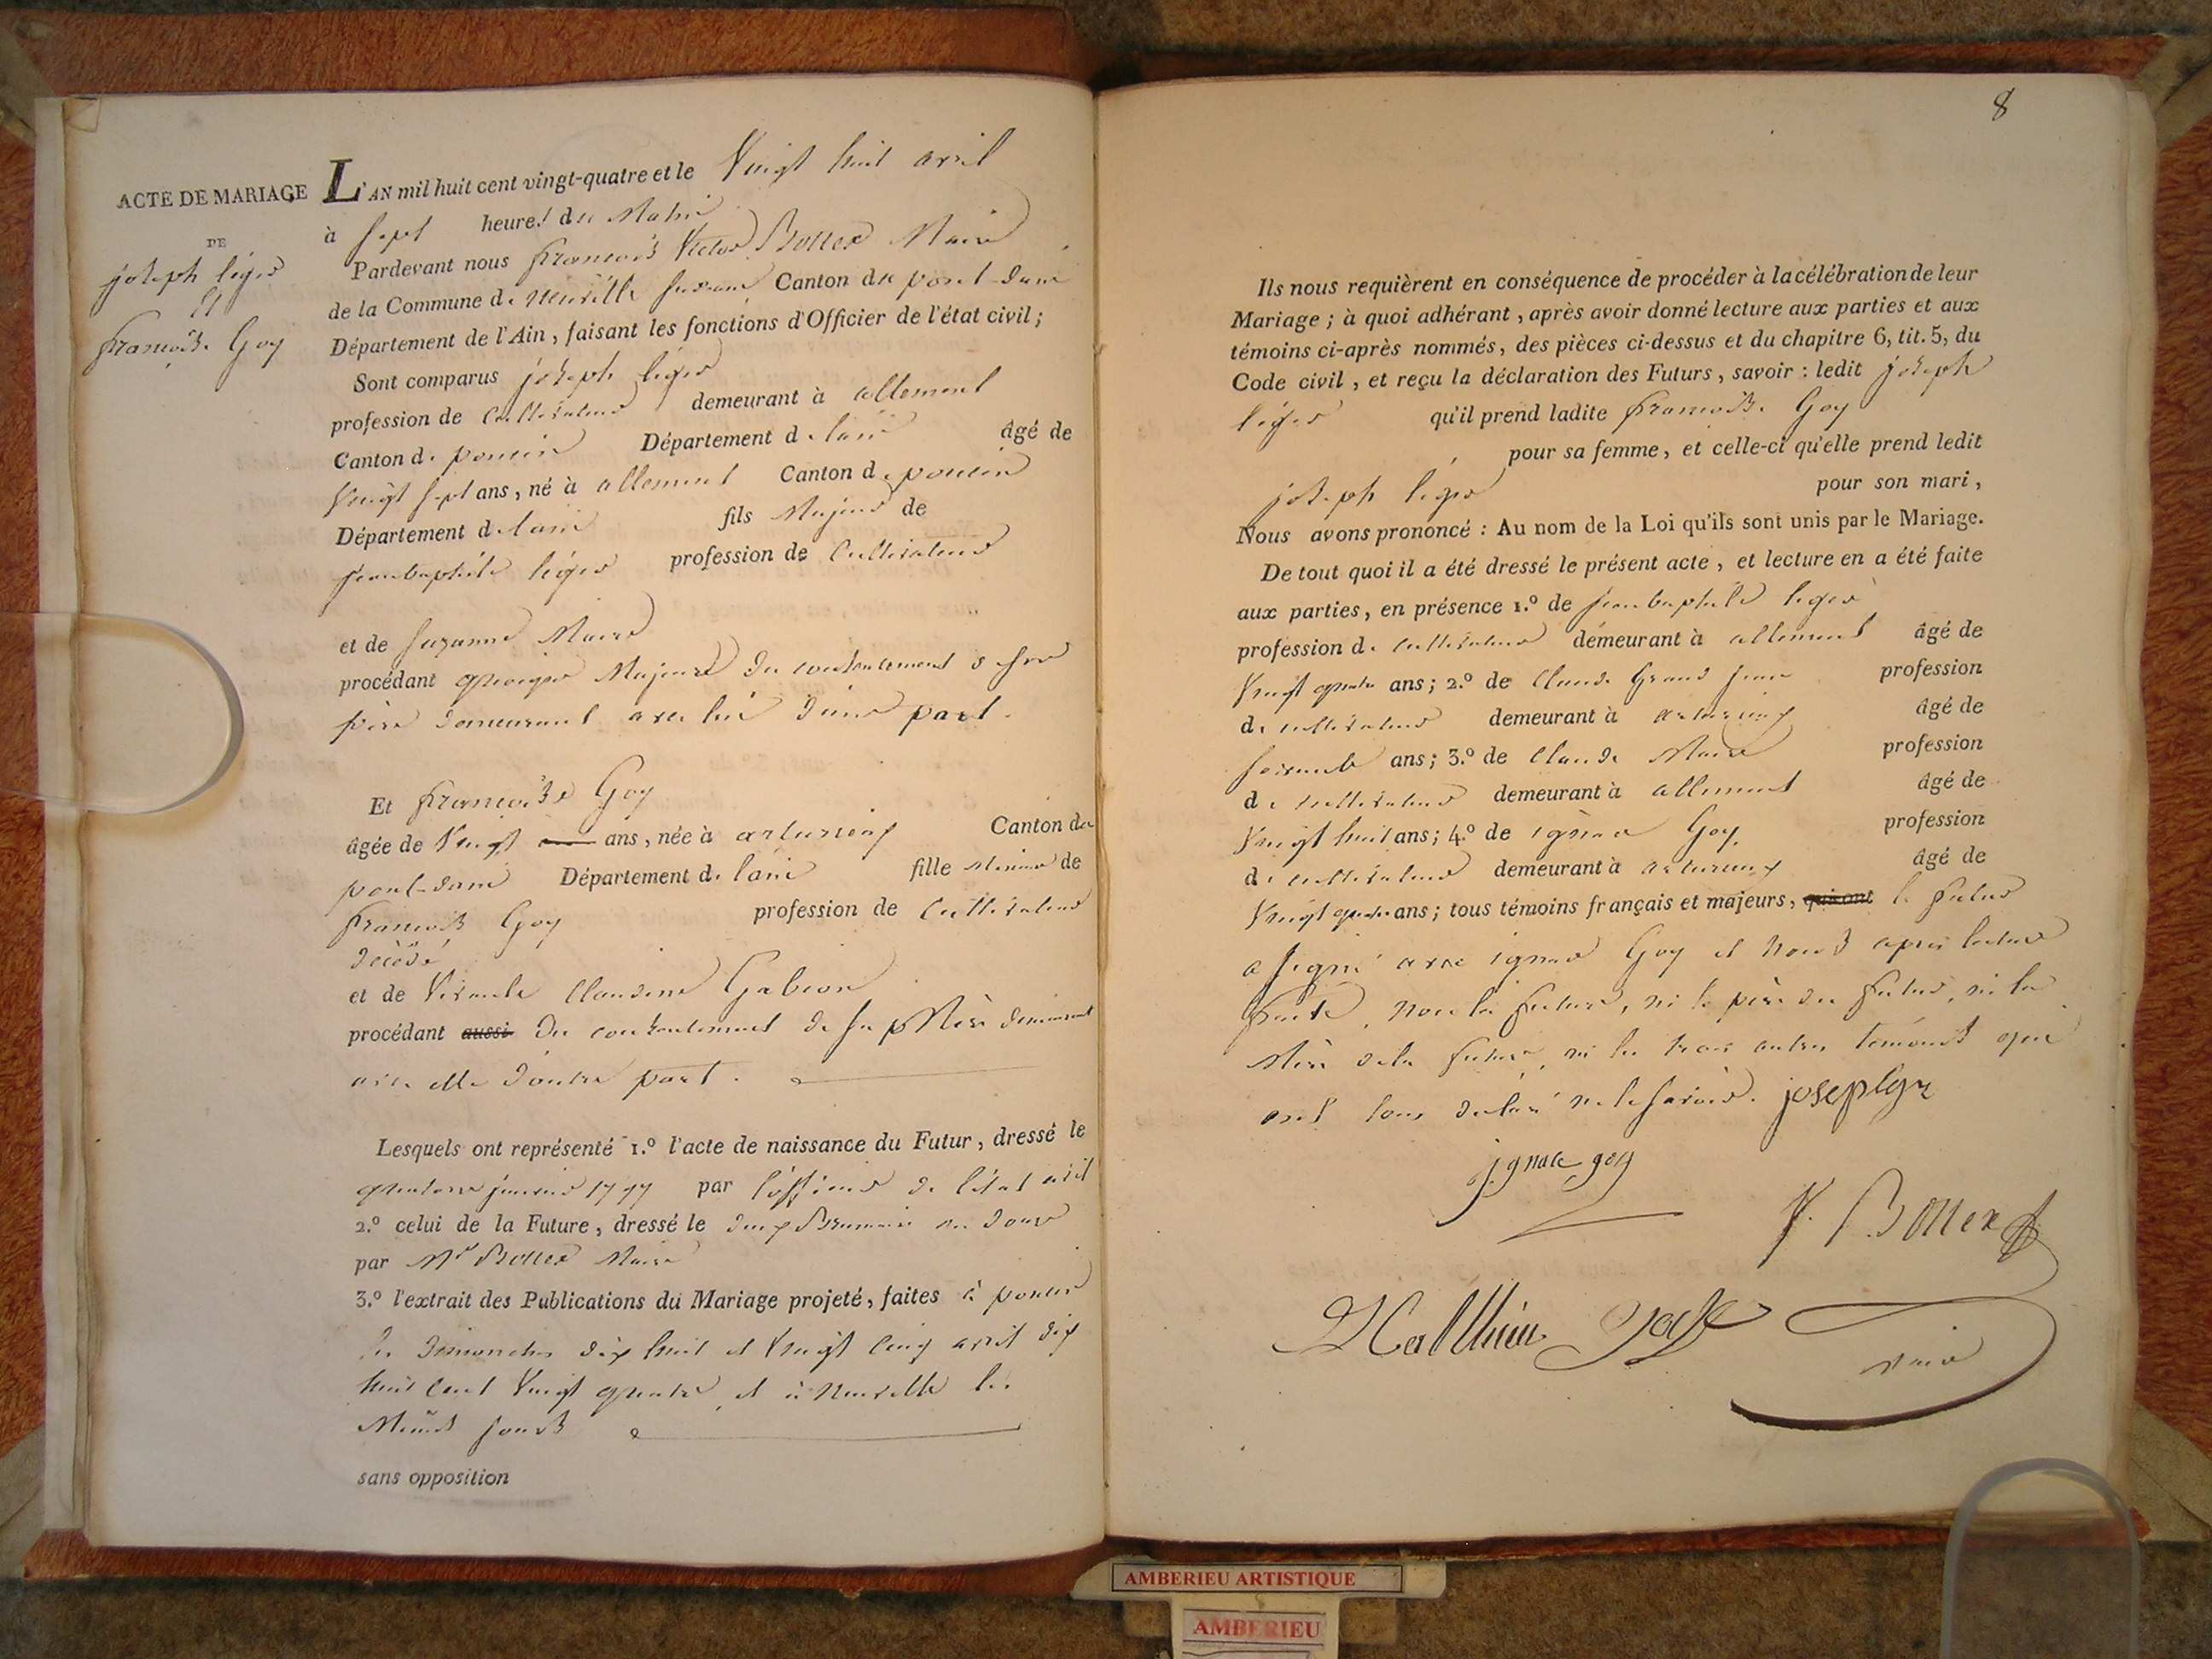 ACTE DE MARIAGE
DE
joseph léger
Et
françoise Goy
L'AN mil huit cent vingt-quatre et le Vingt huit avril
à sept heures du Matin
Pardevant nous françois Victor Bottex Maire
de la Commune de neuville sur ain Canton du pont-dain
Département de l'Ain, faisant les fonctions d'Officier de l'état civil;
Sont comparus joseph léger
profession de Cultivateur demeurant à allement
Canton de poncin Département de lain âgé de
Vingt sept ans, né à allement Canton de poncin
Département de lain fils Majeur de
jeanbaptiste léger profession de Cultivateur
et de suzanne Maire
procédant quoique Majeur du consentement de son
père demeurant avec lui d'une part.
Et françoise Goy
âgée de Vingt ans, née à Canton du
pont-dain Département de lain fille Mineure de
françois Goy profession de Cultivateur
décédé
et de Vivante Claudine Gabion
procédant aussi du consentement de sa Mère demeurant
avec elle d'autre part.
Lesquels ont représenté 1.º l'acte de naissance du Futur, dressé le
janvier 1797 par l'officier de l'état civil
2.º celui de la Future, dressé le Brumaire an douze
par Mr Bottex Maire
3.º l'extrait des Publications du Mariage projeté, faites à poncin
les dimanches dix huit et Vingt cinq avril dix
huit cent Vingt quatre, et à Neuville les
Mêmes jours
sans opposition
8
Ils nous requièrent en conséquence de procéder à la célébration de leur
Mariage; à quoi adhérant, après avoir donné lecture aux parties et aux
témoins ci-après nommés, des pièces ci-dessus et du chapitre 6, tit. 5, du
Code civil, et reçu la déclaration des Futurs, savoir: ledit joseph
léger qu'il prend ladite françoise Goy
pour sa femme, et celle-ci qu'elle prend ledit
joseph léger pour son mari,
Nous avons prononcé: Au nom de la Loi qu'ils sont unis par le Mariage.
De tout quoi il a été dressé le présent acte, et lecture en a été faite
aux parties, en présence 1.º de jeanbaptiste léger
profession de cultivateur demeurant à allement âgé de
Vingt quatre ans; 2.º de Claude Grand jean profession
de cultivateur demeurant à âgé de
soixante ans; 3.º de Claude Maire profession
de cultivateur demeurant à allement âgé de
Vingt huit ans; 4.º de ignace Goy profession
de cultivateur demeurant à âgé de
Vingt quatre ans; tous témoins français et majeurs, qui ont le futur
a signé avec ignace Goy et nous après lecture
faite, non la future, ni le père du futur, ni la
Mère de la future, ni les trois autres témoins qui
ont tous déclaré ne le savoir.
jgnace goy
V. Bottex
AMBERIEU ARTISTIQUE
AMBERIEU